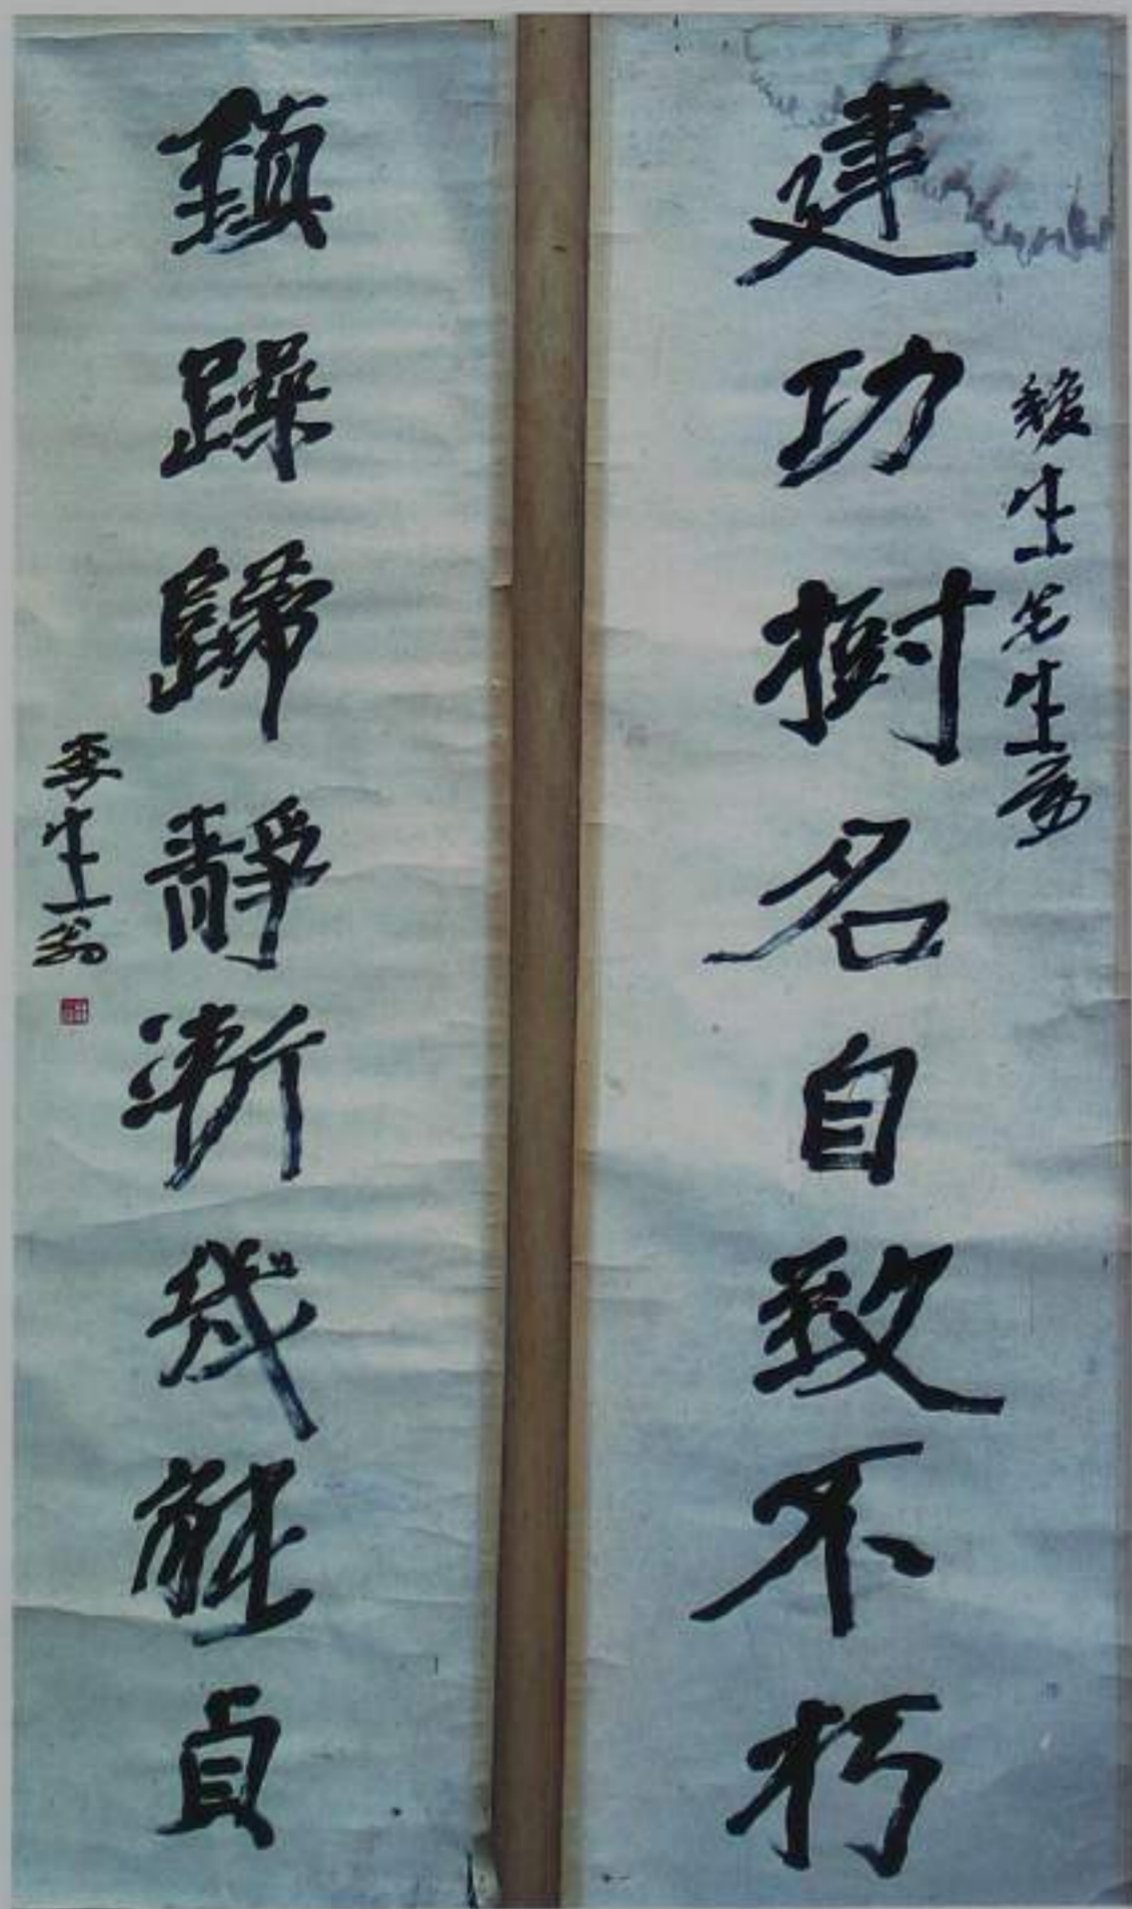 建功樹名自致不朽
生先生
鎮躁歸靜漸幾能貞
李生翁